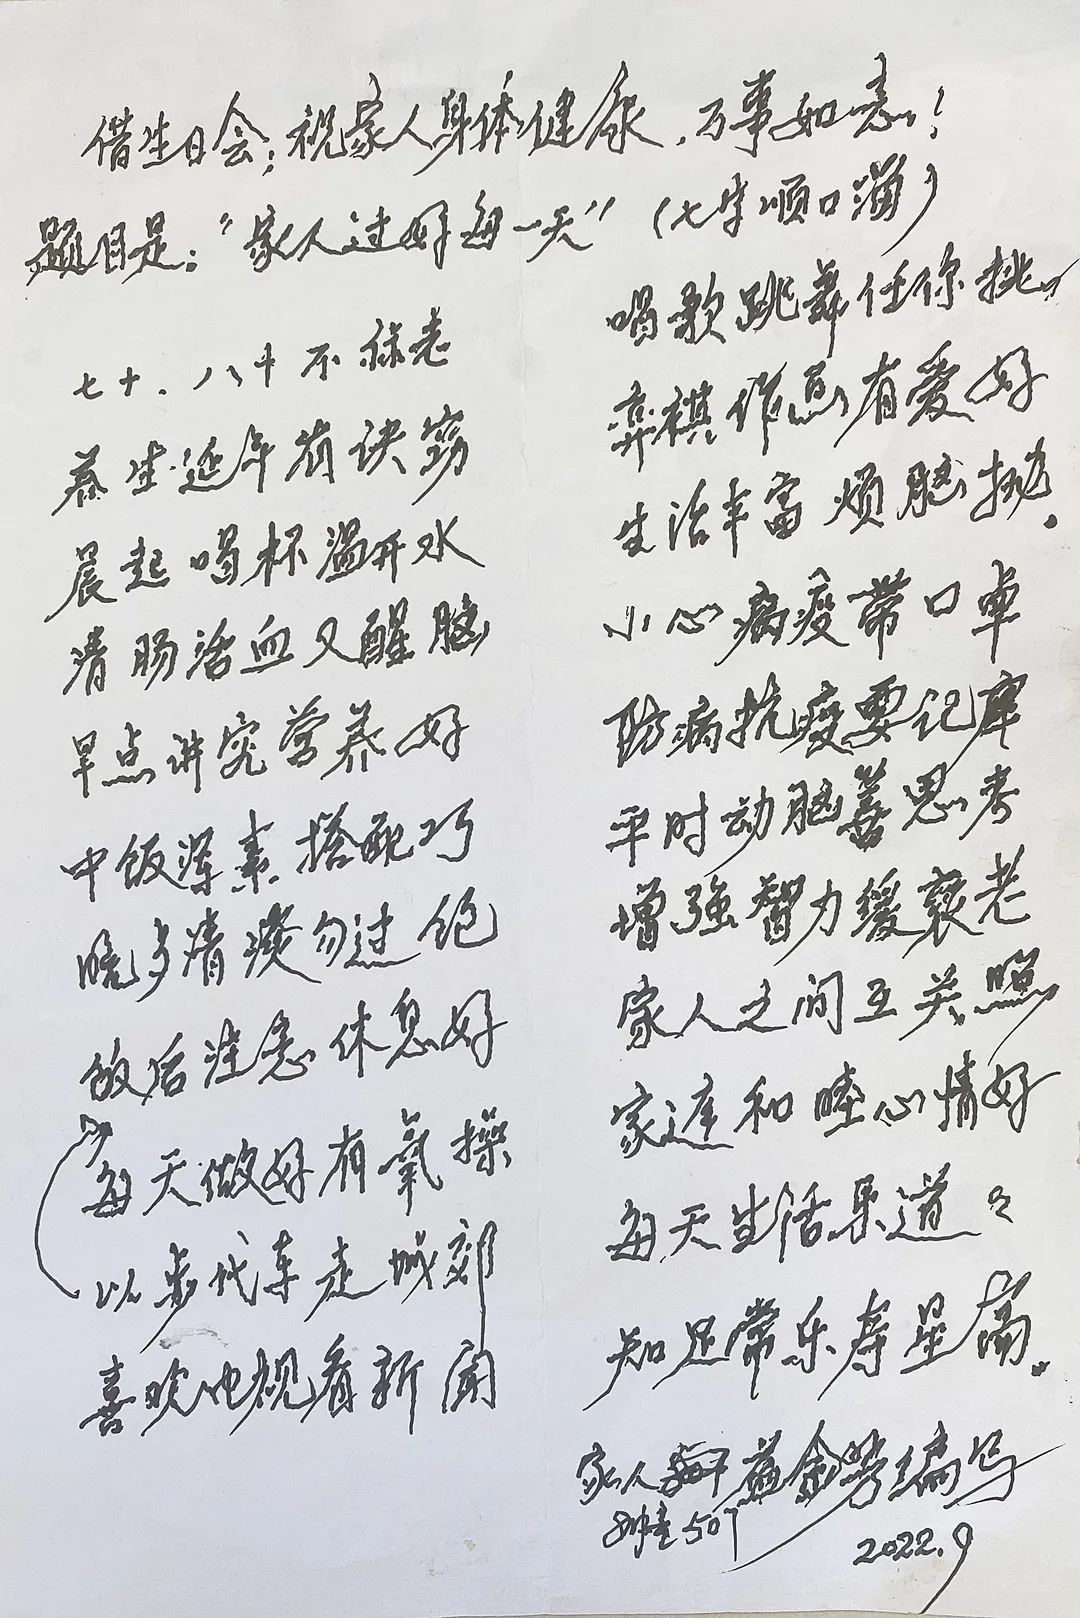 借生日会；祝家人身体健康，万事如意！
题目是：“家人过好每一天”（七字顺口溜）
七十、八十不稀老
养生延年有诀窍
晨起喝杯温开水
清肠活血又醒脑
早点讲究营养好
中饭荤素搭配巧
晚歺清淡勿过饱
饭后注意休息好
每天做好有氧操
以步代车走城郊
喜欢电视看新闻
唱歌跳舞任你挑
弈棋作画有爱好
生活丰富烦脑抛。
小心病疫带口罩
防病抗疫要记牢
平时动脑善思考
增强智力缓衰老
家人之间互关照
家庭和睦心情好
每天生活乐逍々
知足常乐寿星高。
家人 金芳编写
507
2022.9